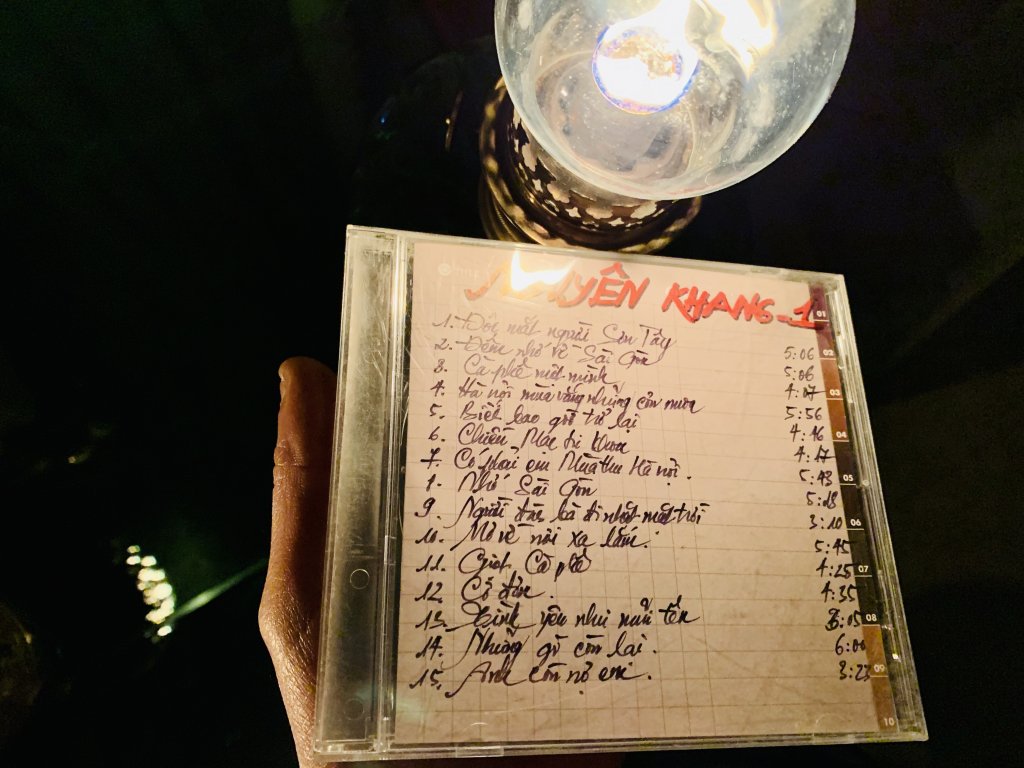 NGUYÊN KHANG_1
1. Đôi mắt người Sơn Tây 5:06
2. Đêm nhớ về Sài Gòn 5:06
3. Cà phê một mình 4:07
4. Hà nội mùa vắng những cơn mưa 5:56
5. Biết bao giờ trở lại 4:46
6. Chiều 4:17
7. Có phải em Mùa thu Hà nội. 5:43
8. Nhớ Sài Gòn 5:18
9. Người đàn bà đi nhặt mặt trời 3:10
10. Mơ về nơi xa lắm. 5:45
11. Giọt Cà phê 4:25
12. Cô đơn. 4:35
13. Tình yêu như nấu tên :05
14. Những gì còn lại. 6:00
15. Anh còn nợ em. 3:23
01
02
03
04
05
06
07
08
09
10